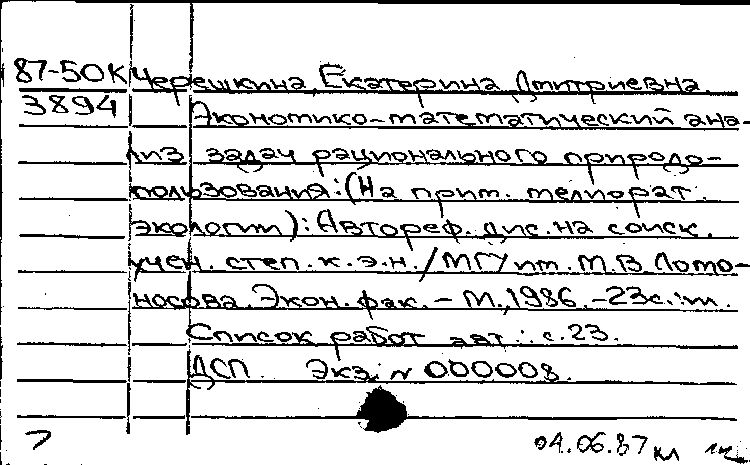 87-50К Черешкина, Екатерина Дмитриевна.
3894 Экономико-математический ана-
лиз задач рационального природо-
пользования: (На прим. мелиорат.
экологии): Автореф. дис. на соиск.
учен. степ. к.э.н. / МГУ им. М.В. Ломо-
носова. Экон. фак. – М., 1986. – 23с.: ил.
Список работ авт.: с.23.
ДСП. Экз. № 000008.
04.06.87 кл